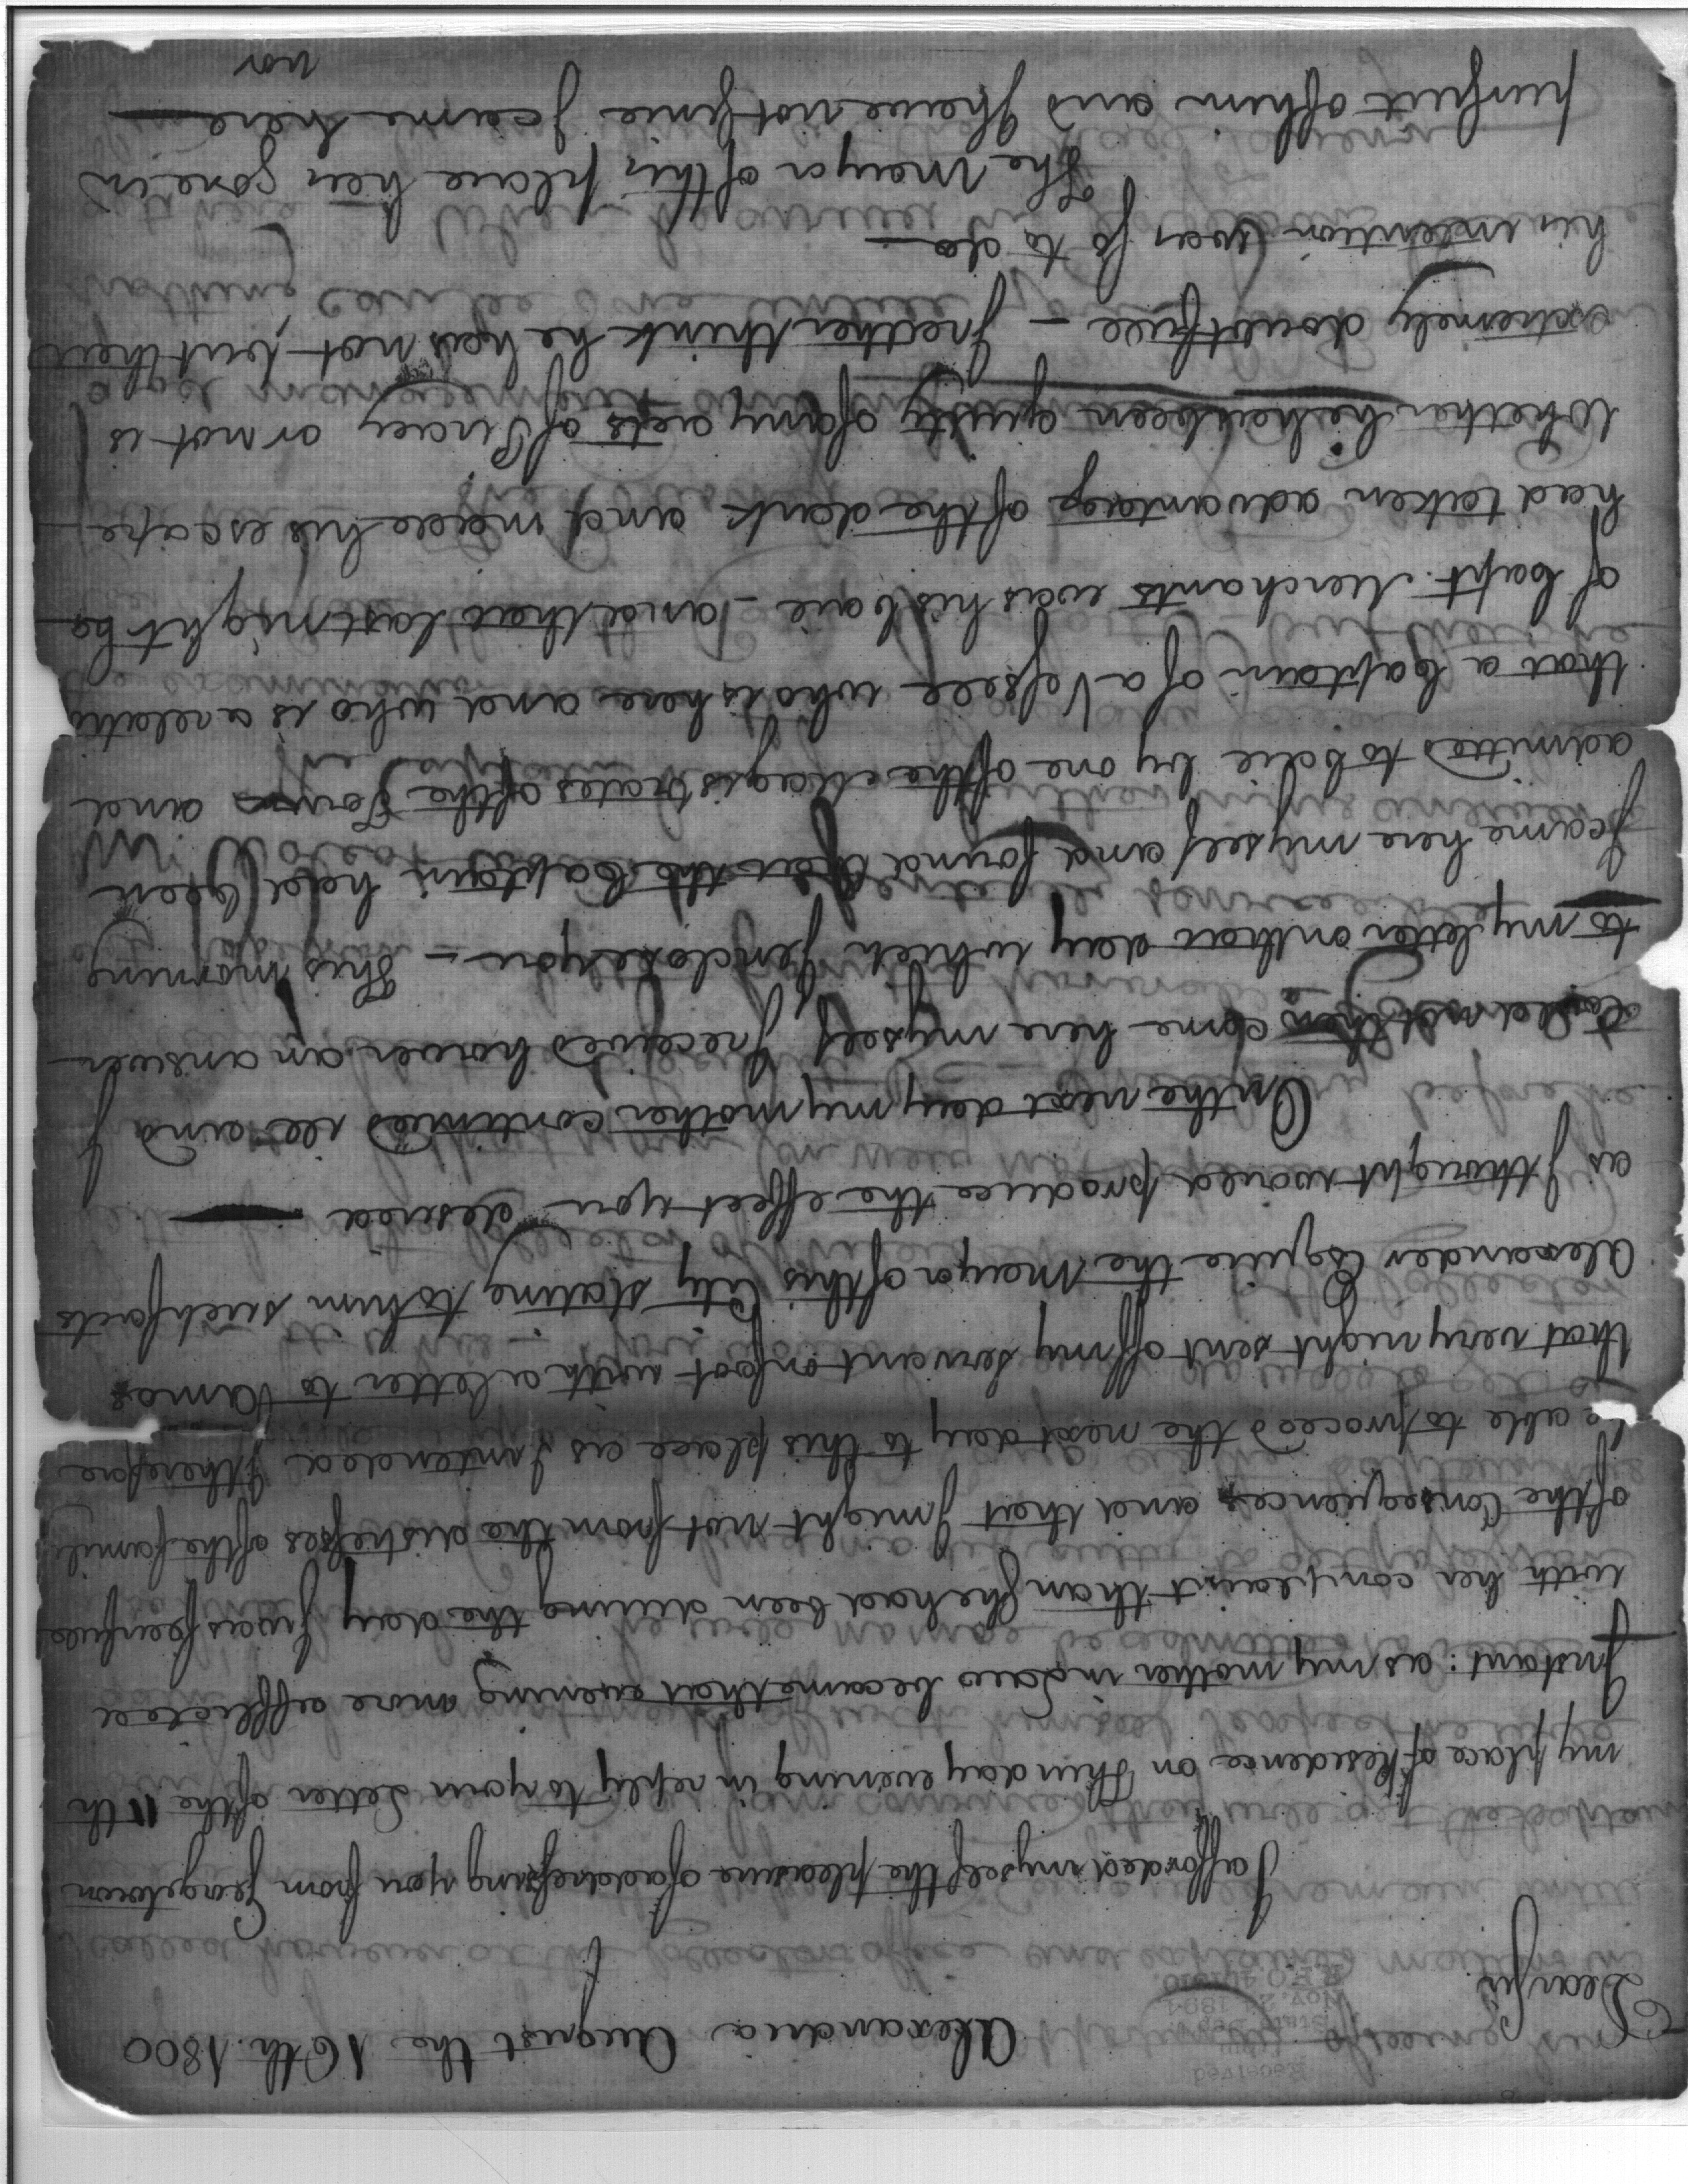 Alexandria August the 16th. 1800
Dear Sir
I afforded myself the pleasure of addressing you from Georgetown
my place of Residence on Thursday evening in reply to your Letter of the 11th
Instant: as my mother in Law became that evening more afflicted
with her complaint than she had been during the day I was fearful
of the Consequences and that I might not from the distresses of the family
be able to proceed the next day to this place as I intended I therefore
that very night sent off my servant on foot with a letter to Amos
Alexander Esquire the Mayor of this City stating to him such facts
as I thought would produce the effect you desired
On the next day my mother continued ill and I
could not then come here myself I received however an answer
to my letter on that day which I enclose you - This morning
I came here myself and found that the Captain had been
admitted to bail by one of the Magistrates of the Town and
that a Captain of a Vessel who is here and who is a relation
of Capt. Merchants was his bail - and that last night he
had taken advantage of the dark and made his escape
Whether he has been guilty of any acts of Piracy or not is
extremely doubtful - I rather think he has not, but that
his intention was so to do -
The Mayor of this place has gone in
pursuit of him and I have not since I came here
nor
Received
State Dep
Nov. 21 1894